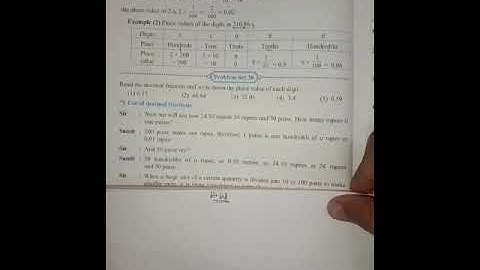 the place value of 2 is 2 × 1/100 = 2/100 = 0.02
Example (2) Place values of the digits in 210.86
Digits 2 1 0 8 6
Place Hundreds Tens Units Tenths Hundredths
Place value 2 × 100 = 200 1 × 10 = 10 0 8 × 1/10 = 0.8 6 × 1/100 = 0.06
Problem Set 39
Read the decimal fraction and write down the place value of each digit.
(1) 6.13 (2) 48.84 (3) 72.05 (4) 3.4 (5) 0.59
Use of decimal fractions
Sir : Now we will see how 24.50 rupees is 24 rupees and 50 paise. How many rupees is one paisa?
Sumit : 100 paise make one rupee, therefore, 1 paisa is one hundredth of a rupee or 0.01 rupee.
Sir : And 50 paise are?
Sumit : 50 hundredths of a rupee, or 0.50 rupees, so 24.50 rupees is 24 rupees and 50 paise.
Sir : When a large unit of a certain quantity is divided into 10 or 100 parts to make